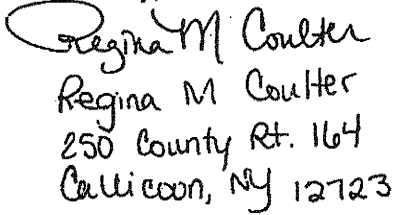 Regina M Coulter
Regina M Coulter
250 County Rt. 164
Callicoon, NY 12723